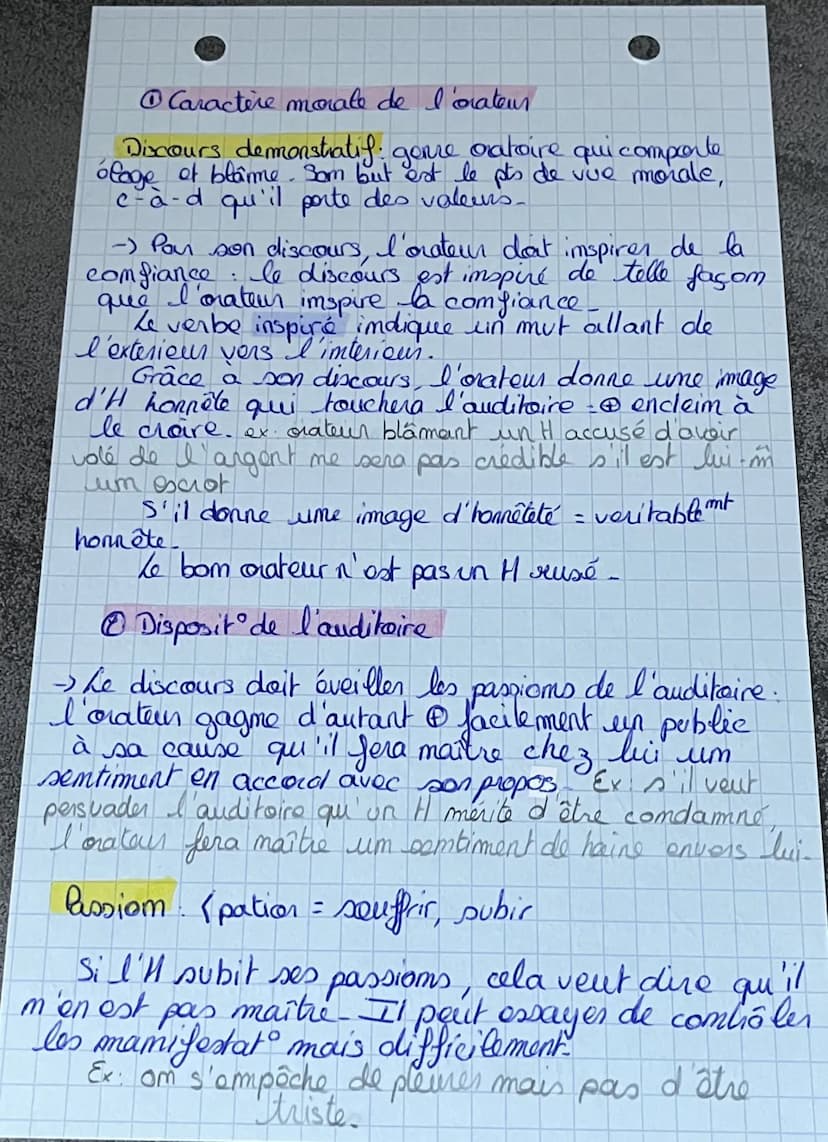 ① Caractère morale de l'orateur
Discours demonstratif : genre oratoire qui comporte
éloge et blâme. Son but est le pts de vue morale,
c-à-d qu'il porte des valeurs.
-> Par son discours, l'orateur doit inspirer de la
confiance : le discours est inspiré de telle façon
que l'orateur inspire la confiance.
Le verbe inspiré indique un mvt allant de
l'exterieur vers l'interieur.
Grâce à son discours, l'orateur donne une image
d'H honnête qui touchera l'auditoire = ⊕ encleim à
le croire. ex: orateur blâmant un H accusé d'avoir
volé de l'argent ne sera pas crédible s'il est lui-m̂
un escroc
S'il donne une image d'honnêteté = veritablemnt
honnête.
Le bon orateur n'est pas un H rusé.
② Disposit° de l'auditoire
-> Le discours doit éveiller les passions de l'auditoire.
l'orateur gagne d'autant ⊕ facilement un public
à sa cause qu'il fera naître chez lui un
sentiment en accord avec son propos. Ex: s'il veut
persuader l'auditoire qu'un H mérite d'être condamné,
l'orateur fera naître un sentiment de haine envers lui.
Passion : ⟨ patior = souffrir, subir
Si l'H subit ses passions, cela veut dire qu'il
n'en est pas maître. Il peut essayer de contrôler
les manifestat° mais difficilement.
Ex: on s'empêche de pleurer mais pas d'être
triste.